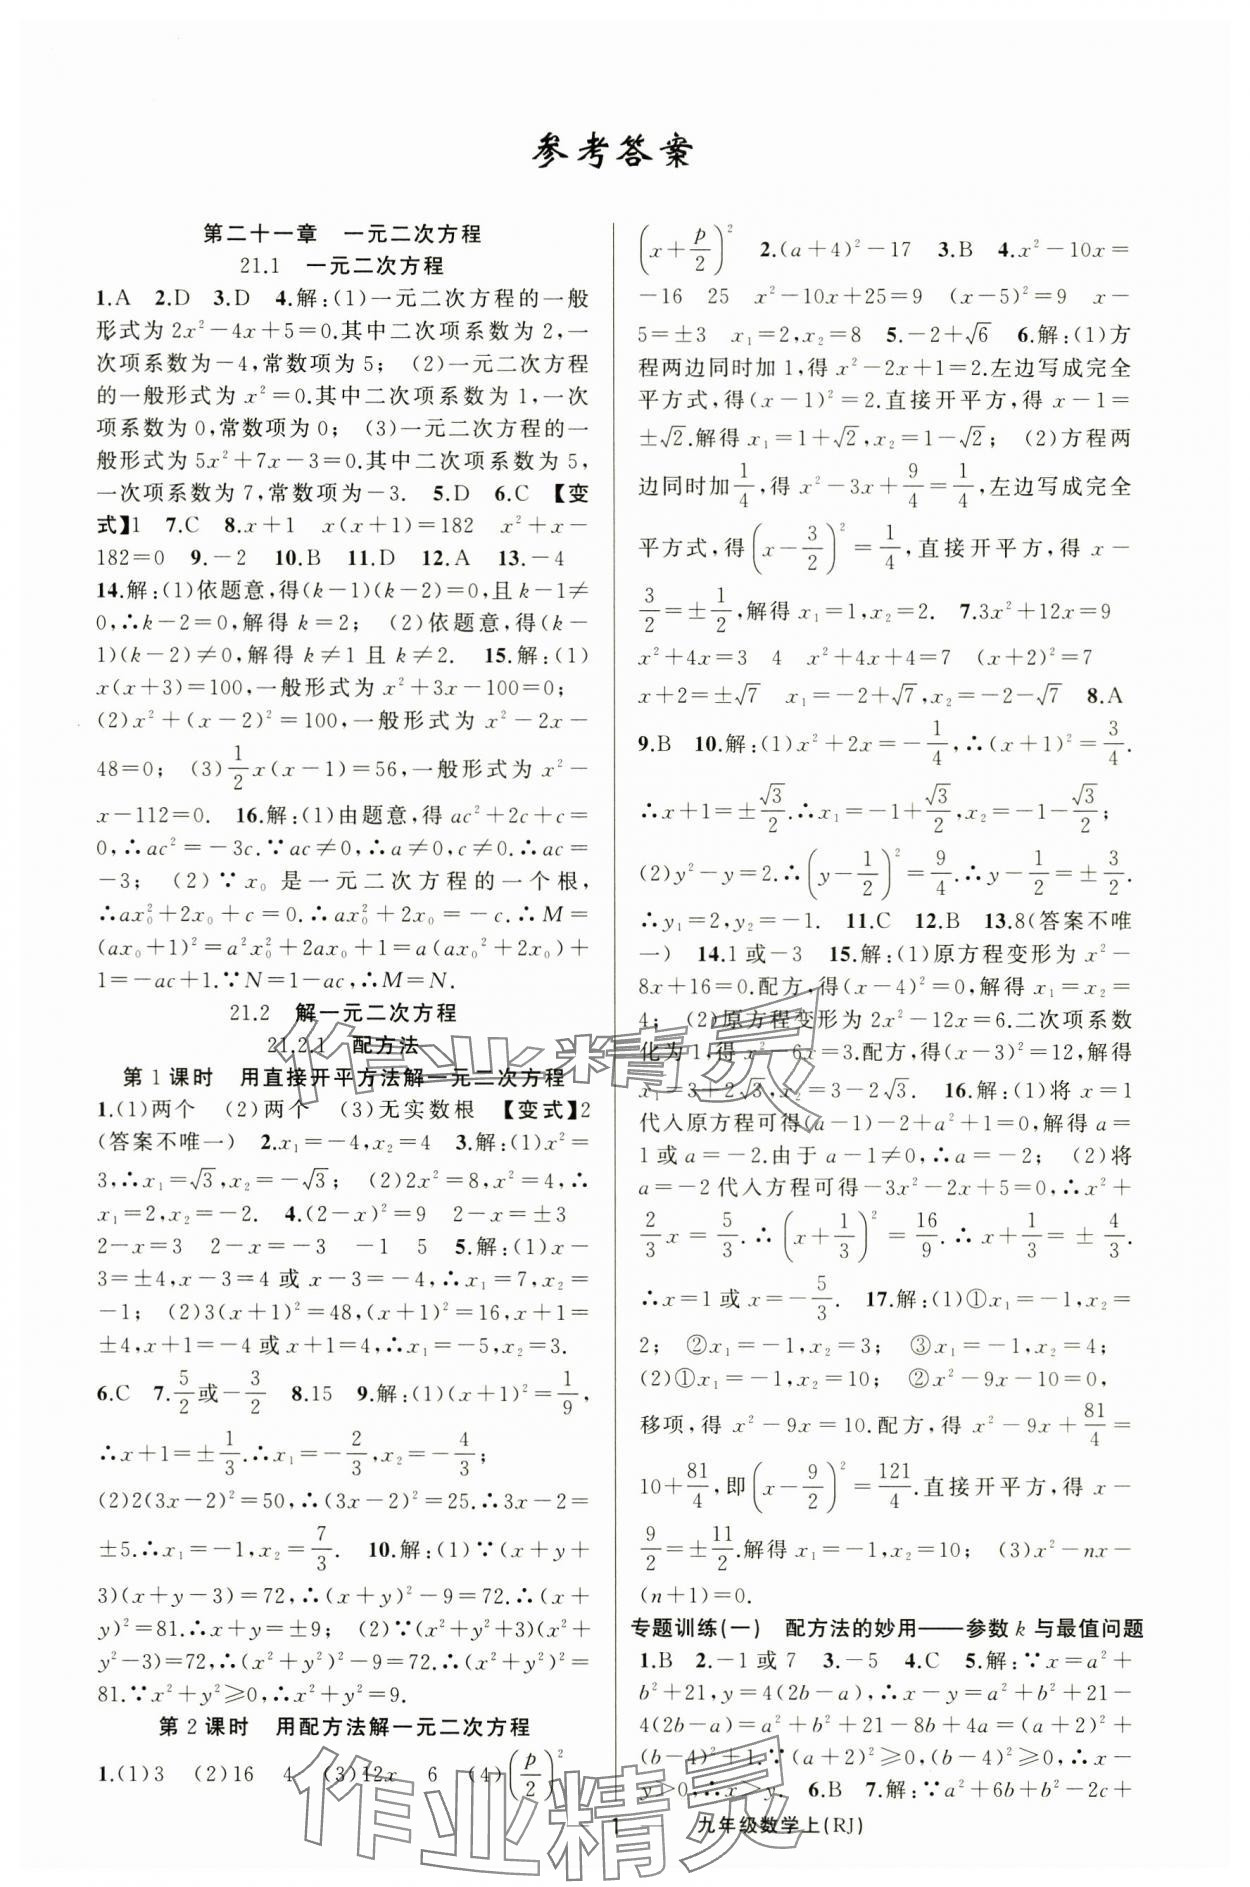 参考答案
第二十一章　一元二次方程
21.1　一元二次方程
1.A　2.D　3.D　4.解:(1)一元二次方程的一般
形式为 2x²－4x＋5＝0.其中二次项系数为 2,一
次项系数为－4,常数项为 5；(2)一元二次方程
的一般形式为 x²＝0.其中二次项系数为 1,一次
项系数为 0,常数项为 0；(3)一元二次方程的一
般形式为 5x²＋7x－3＝0.其中二次项系数为 5,
一次项系数为 7,常数项为－3.　5.D　6.C　【变
式】1　7.C　8.x＋1　x(x＋1)＝182　x²＋x－
182＝0　9.－2　10.B　11.D　12.A　13.－4
14.解:(1)依题意,得(k－1)(k－2)＝0,且 k－1≠
0,∴k－2＝0,解得 k＝2；(2)依题意,得(k－
1)(k－2)≠0,解得 k≠1 且 k≠2.　15.解:(1)
x(x＋3)＝100,一般形式为 x²＋3x－100＝0；
(2)x²＋(x－2)²＝100,一般形式为 x²－2x－
48＝0；(3)1/2x(x－1)＝56,一般形式为 x²－
x－112＝0.　16.解:(1)由题意,得 ac²＋2c＋c＝
0,∴ac²＝－3c.∵ac≠0,∴a≠0,c≠0.∴ac＝
－3；(2)∵x₀ 是一元二次方程的一个根,
∴ax₀²＋2x₀＋c＝0.∴ax₀²＋2x₀＝－c.∴M＝
(ax₀＋1)²＝a²x₀²＋2ax₀＋1＝a(ax₀²＋2x₀)＋
1＝－ac＋1.∵N＝1－ac,∴M＝N.
21.2　解一元二次方程
21.2.1　配方法
第 1 课时　用直接开平方法解一元二次方程
1.(1)两个　(2)两个　(3)无实数根　【变式】2
(答案不唯一)　2.x₁＝－4,x₂＝4　3.解:(1)x²＝
3,∴x₁＝√3,x₂＝－√3；(2)2x²＝8,x²＝4,∴
x₁＝2,x₂＝－2.　4.(2－x)²＝9　2－x＝±3
2－x＝3　2－x＝－3　－1　5　5.解:(1)x－
3＝±4,x－3＝4 或 x－3＝－4,∴x₁＝7,x₂＝
－1；(2)3(x＋1)²＝48,(x＋1)²＝16,x＋1＝
±4,x＋1＝－4 或 x＋1＝4,∴x₁＝－5,x₂＝3.
6.C　7.5/2或－3/2　8.15　9.解:(1)(x＋1)²＝1/9,
∴x＋1＝±1/3.∴x₁＝－2/3,x₂＝－4/3；
(2)2(3x－2)²＝50,∴(3x－2)²＝25.∴3x－2＝
±5.∴x₁＝－1,x₂＝7/3.　10.解:(1)∵(x＋y＋
3)(x＋y－3)＝72,∴(x＋y)²－9＝72.∴(x＋
y)²＝81.∴x＋y＝±9；(2)∵(x²＋y²＋3)(x²＋
y²－3)＝72,∴(x²＋y²)²－9＝72.∴(x²＋y²)²＝
81.∵x²＋y²≥0,∴x²＋y²＝9.
第 2 课时　用配方法解一元二次方程
1.(1)3　(2)16　4　(3)12x　6　(4)(p/2)²
(x＋p/2)²　2.(a＋4)²－17　3.B　4.x²－10x＝
－16　25　x²－10x＋25＝9　(x－5)²＝9　x－
5＝±3　x₁＝2,x₂＝8　5.－2＋√6　6.解:(1)方
程两边同时加 1,得 x²－2x＋1＝2.左边写成完全
平方式,得(x－1)²＝2.直接开平方,得 x－1＝
±√2.解得 x₁＝1＋√2,x₂＝1－√2；(2)方程两
边同时加1/4,得 x²－3x＋9/4＝1/4,左边写成完全
平方式,得(x－3/2)²＝1/4,直接开平方,得 x－
3/2＝±1/2,解得 x₁＝1,x₂＝2.　7.3x²＋12x＝9
x²＋4x＝3　4　x²＋4x＋4＝7　(x＋2)²＝7
x＋2＝±√7　x₁＝－2＋√7,x₂＝－2－√7　8.A
9.B　10.解:(1)x²＋2x＝－1/4,∴(x＋1)²＝3/4.
∴x＋1＝±√3/2.∴x₁＝－1＋√3/2,x₂＝－1－√3/2；
(2)y²－y＝2.∴(y－1/2)²＝9/4.∴y－1/2＝±3/2.
∴y₁＝2,y₂＝－1.　11.C　12.B　13.8(答案不唯
一)　14.1 或－3　15.解:(1)原方程变形为 x²－
8x＋16＝0.配方,得(x－4)²＝0,解得 x₁＝x₂＝
4；(2)原方程变形为 2x²－12x＝6.二次项系数
化为 1,得 x²－6x＝3.配方,得(x－3)²＝12,解得
x₁＝3＋2√3,x₂＝3－2√3.　16.解:(1)将 x＝1
代入原方程可得(a－1)－2＋a²＋1＝0,解得 a＝
1 或 a＝－2.由于 a－1≠0,∴a＝－2；(2)将
a＝－2 代入方程可得－3x²－2x＋5＝0,∴x²＋
2/3x＝5/3.∴(x＋1/3)²＝16/9.∴x＋1/3＝±4/3.
∴x＝1 或 x＝－5/3.　17.解:(1)①x₁＝－1,x₂＝
2；②x₁＝－1,x₂＝3；③x₁＝－1,x₂＝4；
(2)①x₁＝－1,x₂＝10；②x²－9x－10＝0,
移项,得 x²－9x＝10.配方,得 x²－9x＋81/4＝
10＋81/4,即(x－9/2)²＝121/4.直接开平方,得 x－
9/2＝±11/2.解得 x₁＝－1,x₂＝10；(3)x²－nx－
(n＋1)＝0.
专题训练(一)　配方法的妙用——参数 k 与最值问题
1.B　2.－1 或 7　3.－5　4.C　5.解:∵x＝a²＋
b²＋21,y＝4(2b－a),∴x－y＝a²＋b²＋21－
4(2b－a)＝a²＋b²＋21－8b＋4a＝(a＋2)²＋
(b－4)²＋1.∵(a＋2)²≥0,(b－4)²≥0,∴x－
y＞0,∴x＞y.　6.B　7.解:∵a²＋6b＋b²－2c＋
1　九年级数学上(RJ)
作业精灵
作业精灵